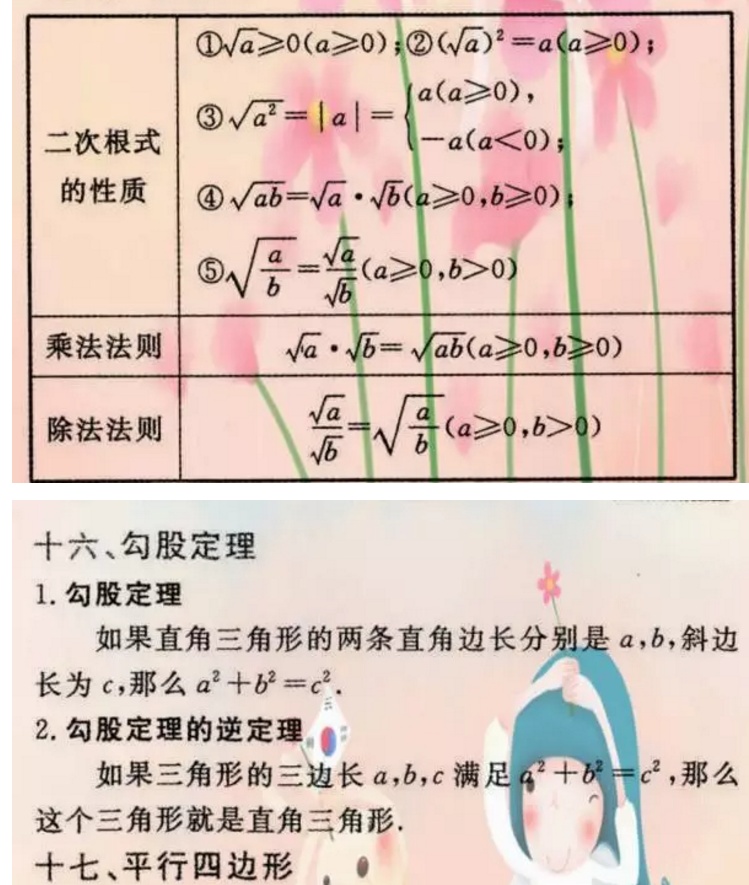 二次根式的性质
①√a≥0(a≥0);②(√a)²=a(a≥0);
③√a²=|a|={a(a≥0),
-a(a<0);
④√ab=√a·√b(a≥0,b≥0);
⑤√(a/b)=√a/√b(a≥0,b>0)
乘法法则 √a·√b=√ab(a≥0,b≥0)
除法法则 √a/√b=√(a/b)(a≥0,b>0)
十六、勾股定理
1.勾股定理
如果直角三角形的两条直角边长分别是a,b,斜边
长为c,那么a²+b²=c².
2.勾股定理的逆定理
如果三角形的三边长a,b,c满足a²+b²=c²,那么
这个三角形就是直角三角形.
十七、平行四边形